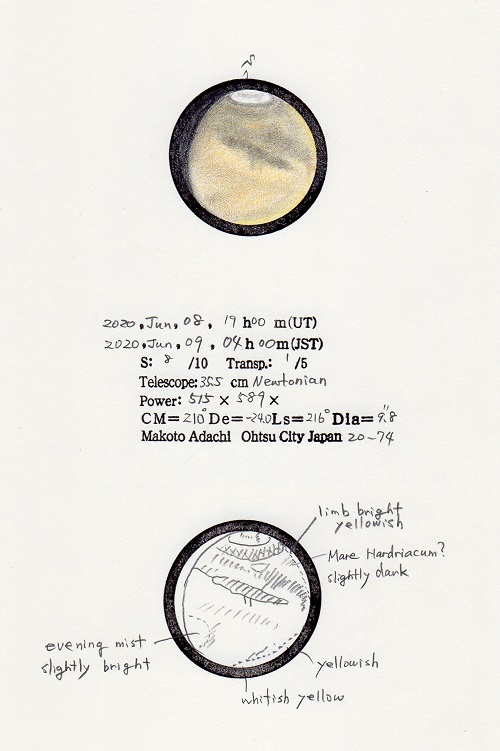 S
2020, Jun, 08, 19 h 00 m (UT)
2020, Jun, 09, 04 h 00 m (JST)
S: 8 /10 Transp.: 1 /5
Telescope: 355 cm Newtonian
Power: 515 × 589 ×
CM=210° De=-24.0 Ls=216° Dia=9.8"
Makoto Adachi Ohtsu City Japan 20-74
limb bright
yellowish
Mare Hardriacum?
slightly dark
evening mist
slightly bright
yellowish
whitish yellow